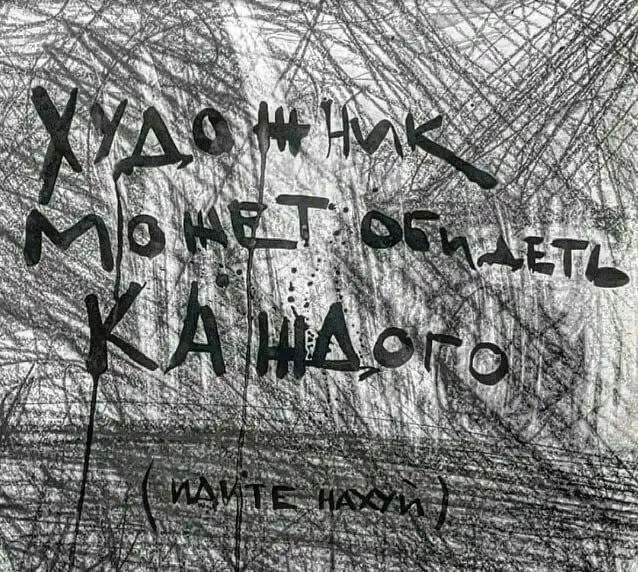 ХУДОЖНИК
МОЖЕТ ОБИДЕТЬ
КАЖДОГО
(ИДИТЕ НАХУЙ)